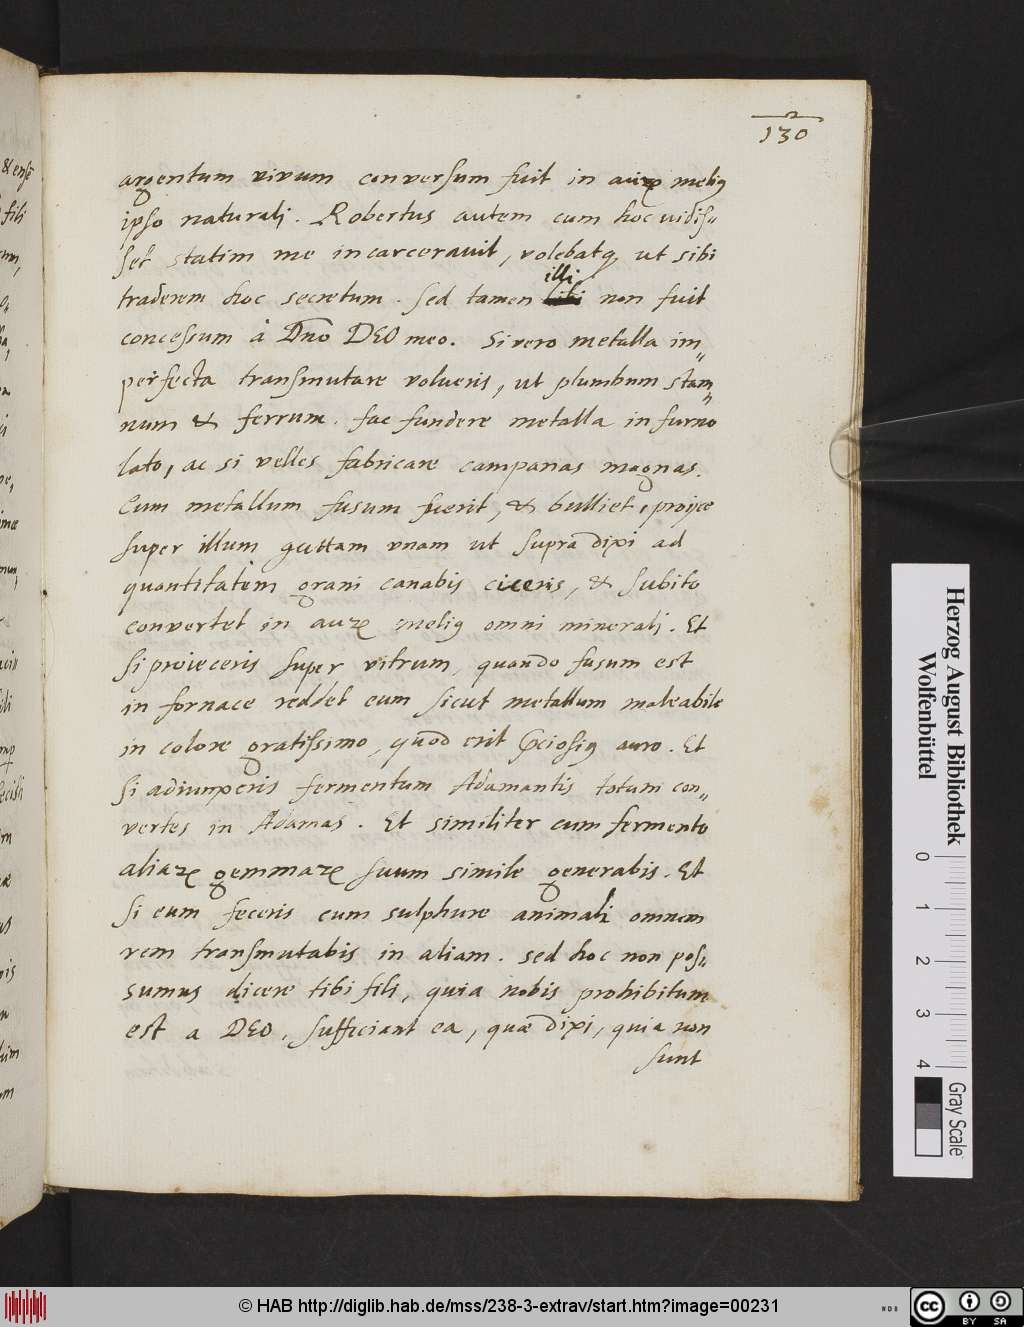 130
argentum vivum conversum fuit in auꝝ meliꝯ
ipso naturali. Robertus autem cum hoc vidis„
set statim me incarceravit, volebatq; ut sibi
traderem hoc secretum. sed tamen illi non fuit
concessum à Dno DEO meo. Si vero metalla im„
perfecta transmutare volueris, ut plumbum stan„
num & ferrum. fac fundere metalla in furno
lato, ac si velles fabricare campanas magnas.
Cum metallum fusum fuerit, & bulliet, proijce
super illum guttam vnam ut supra dixi ad
quantitatem grani canabis ciceris, & subito
convertet in auꝝ meliꝯ omni minerali. Et
si proieceris super vitrum, quando fusum est
in fornace reddet eum sicut metallum maleabile
in colore gratissimo, quod erit p̄ciosiꝯ auro. Et
si adiunxeris fermentum Adamantis totum con„
vertes in Adamas. Et similiter cum fermento
aliaꝝ gemmaꝝ suum simile generabis. Et
si eum feceris cum sulphure animali omnem
rem transmutabis in aliam. sed hoc non pos„
sumus dicere tibi fili, quia nobis prohibitum
est a DEO. sufficiant ea, quæ dixi, quia non
sunt
Herzog August Bibliothek
Wolfenbüttel
0 1 2 3 4
Gray Scale
© HAB http://diglib.hab.de/mss/238-3-extrav/start.htm?image=00231
cc BY SA